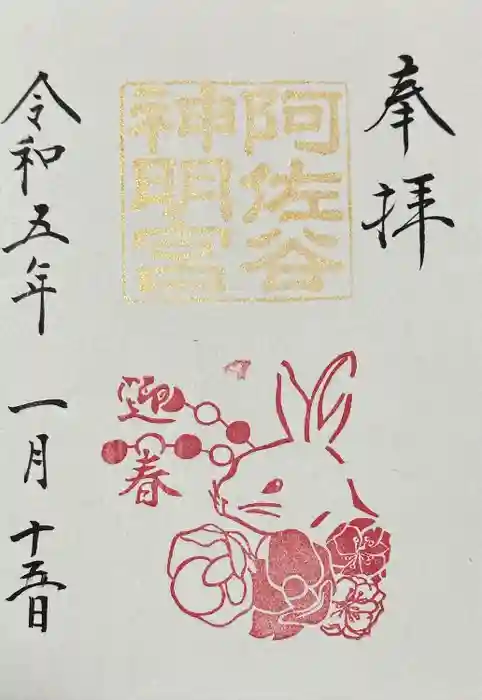 奉拝
阿佐谷
神明宮
迎
春
令和五年 一月 十五日